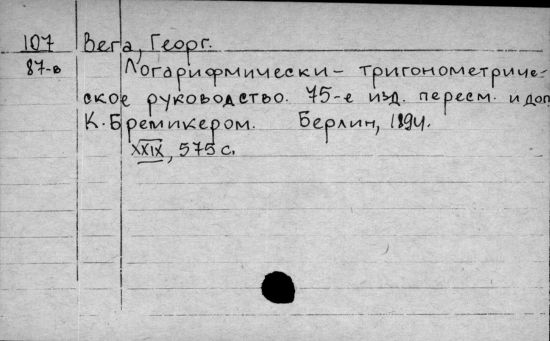 107 Вега, Георг.
87-в Логарифмически - тригонометриче-
ское руководство. 75-е изд. пересм. и доп
К. Бремикером. Берлин, 1894.
XXIX, 575 с.